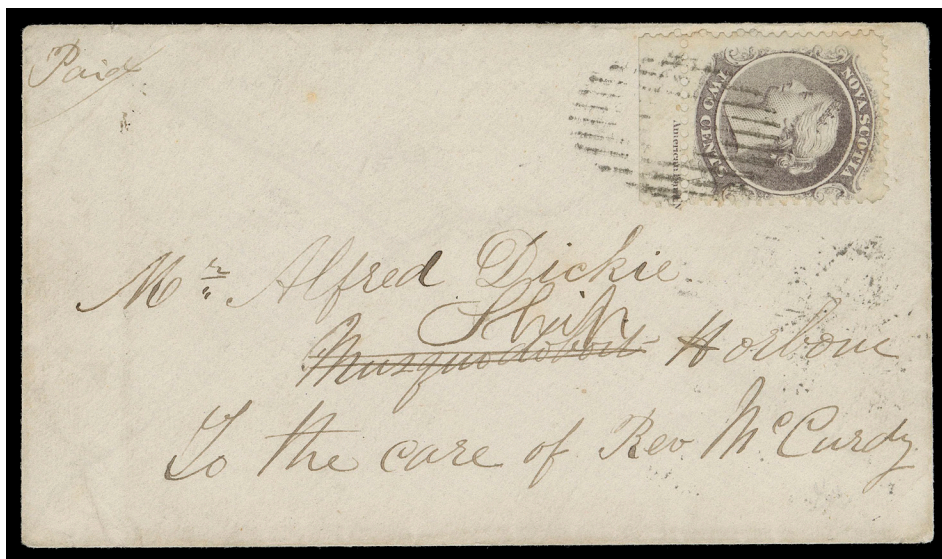 Paid
NOVA SCOTIA
TWO CENTS
American Bank
Mr Alfred Dickie
Ship
Musquodoboit Harbour
To the care of Rev McCurdy